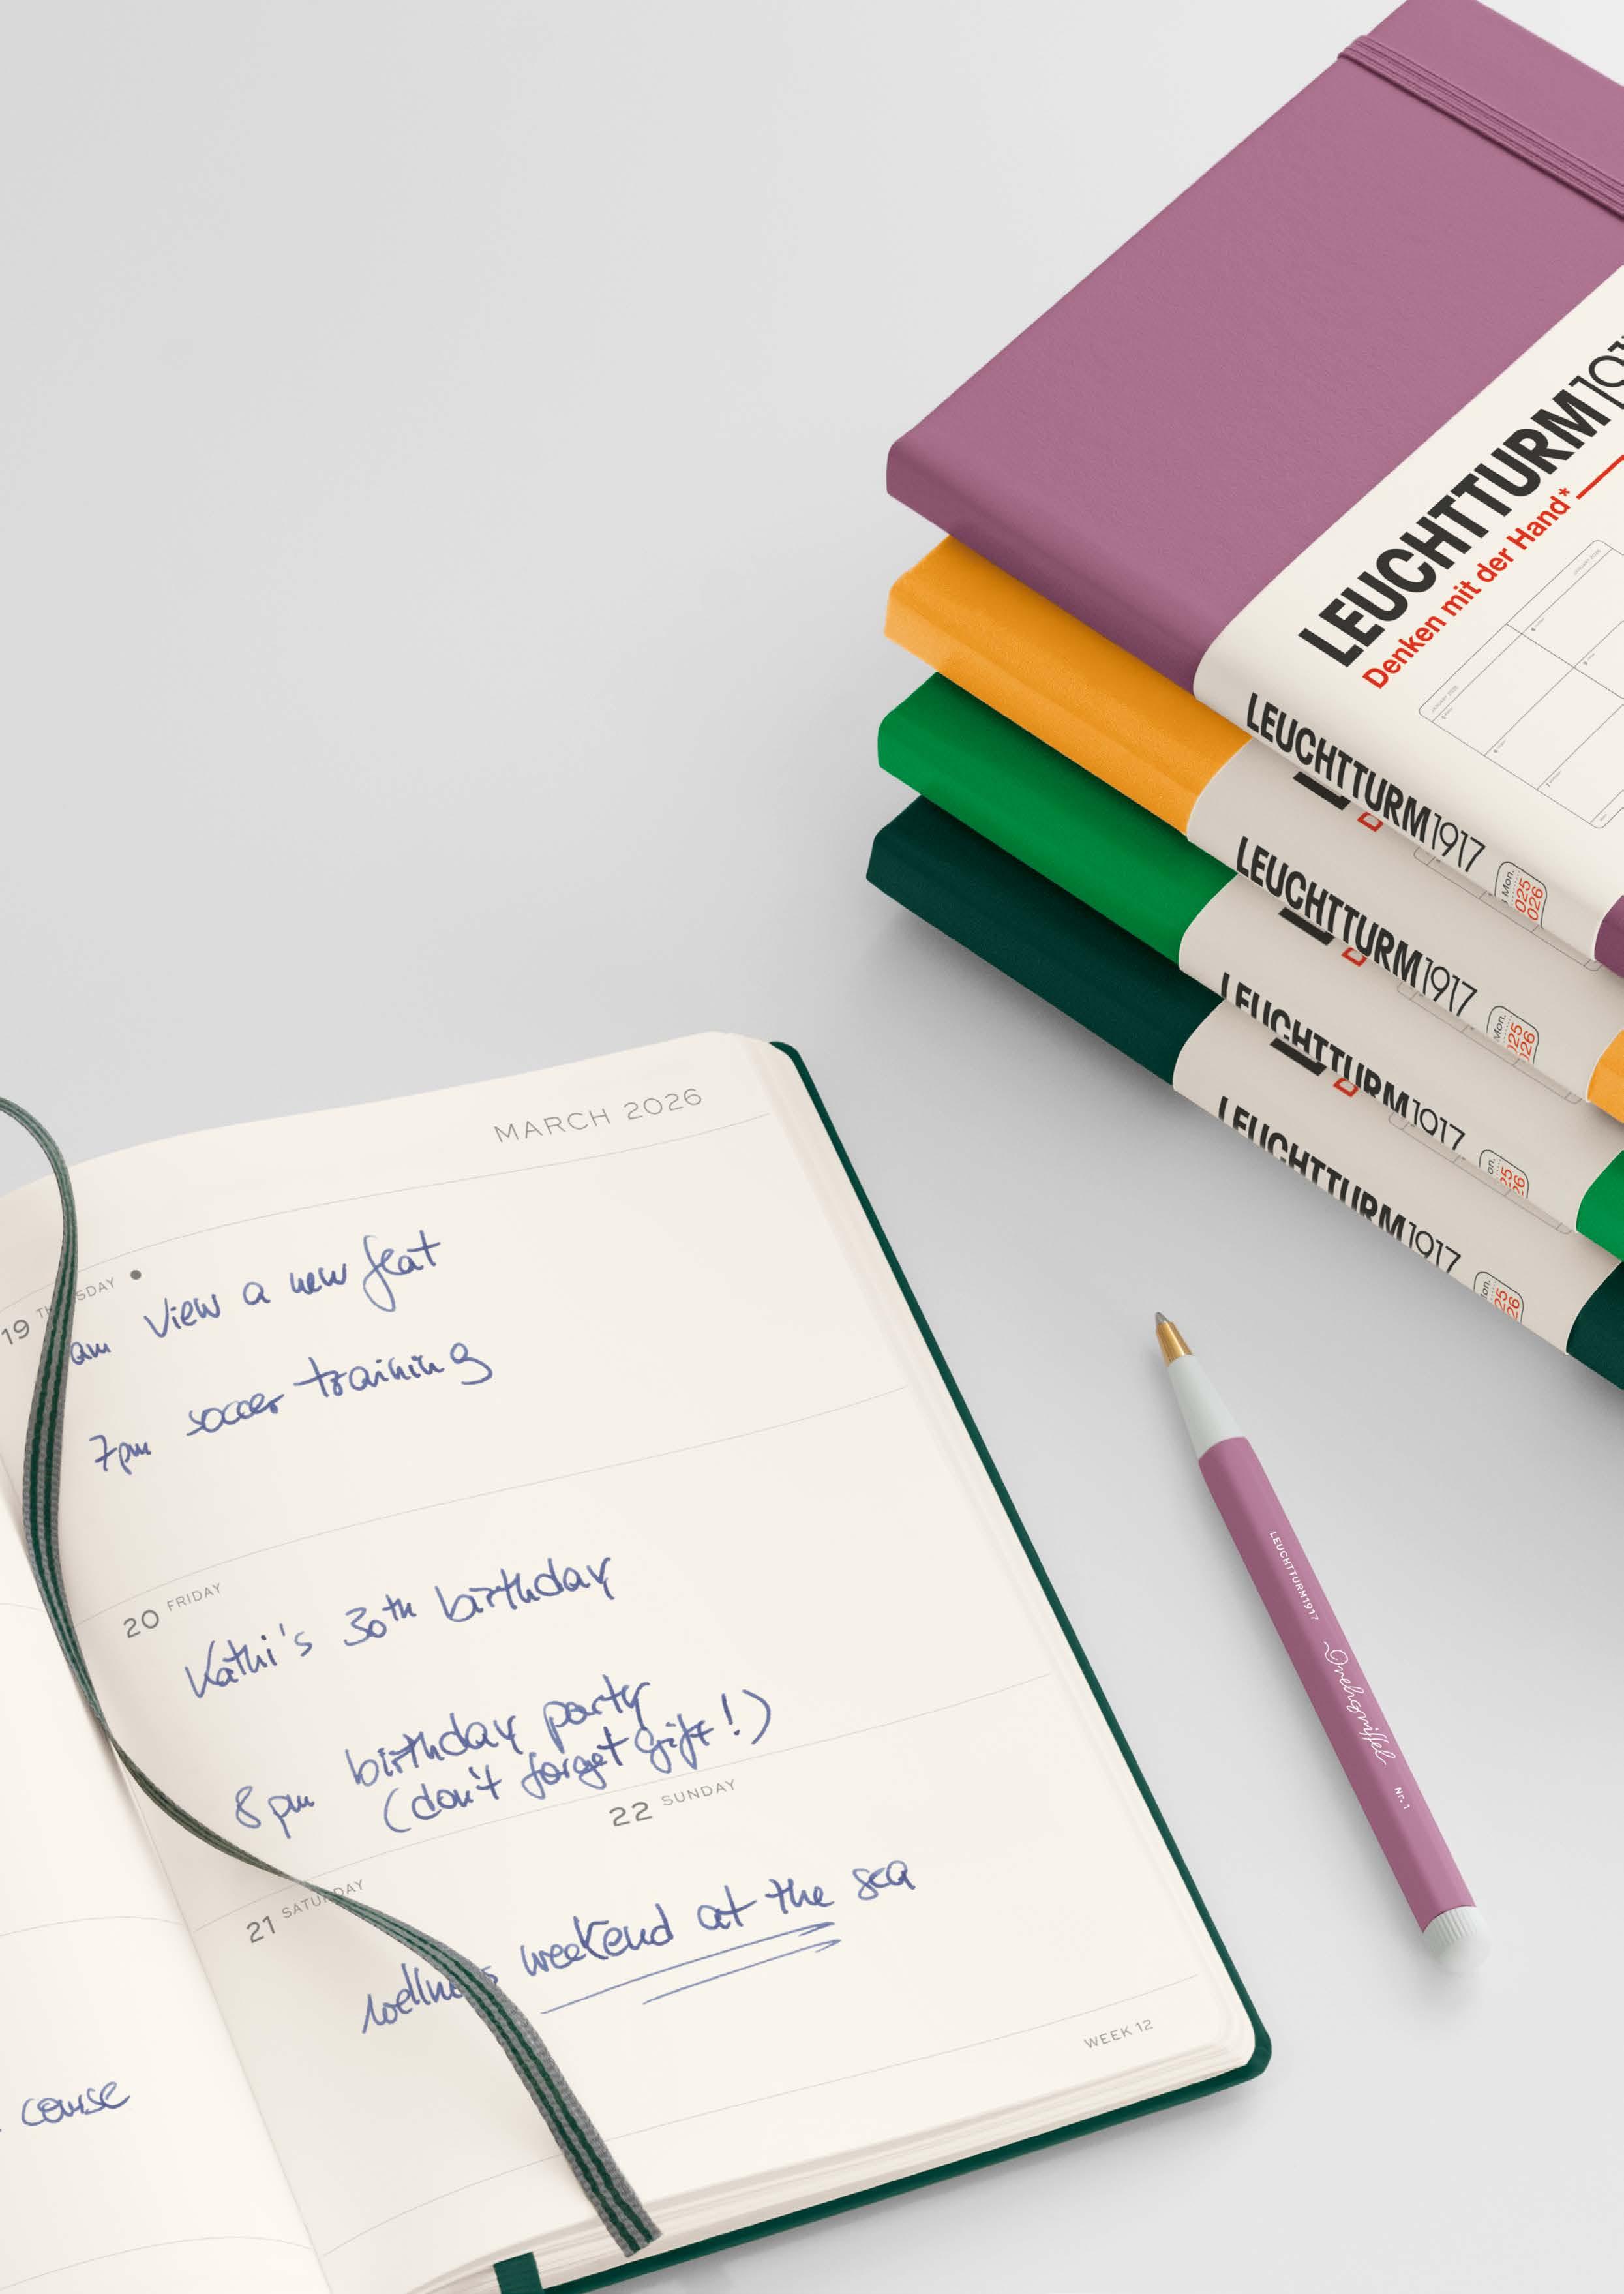 LEUCHTTURM191
Denken mit der Hand*
LEUCHTTURM1917
Mon.
025
026
LEUCHTTURM1917
Mon.
025
026
LEUCHTTURM1917
on.
25
26
LEUCHTTURM1917
on.
25
26
MARCH 2026
19 TH SDAY
am View a new flat
7pm soccer training
20 FRIDAY
Kathi's 30th birthday
8pm birthday party
(don't forget gift!)
21 SATURDAY
22 SUNDAY
wellness weekend at the sea
WEEK 12
course
LEUCHTTURM1917 Drehgriffel Nr. 1